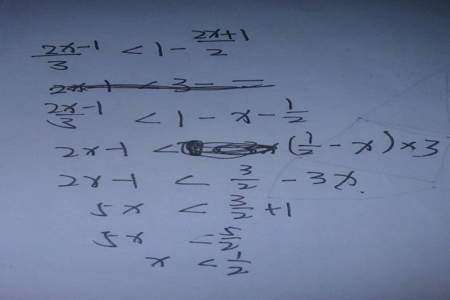 (2x-1)/3 < 1 - (2x+1)/2
(2x-1)/3 < 1 - x - 1/2
2x-1 < (1/2 - x) × 3
2x-1 < 3/2 - 3x.
5x < 3/2 + 1
5x < 5/2
x < 1/2